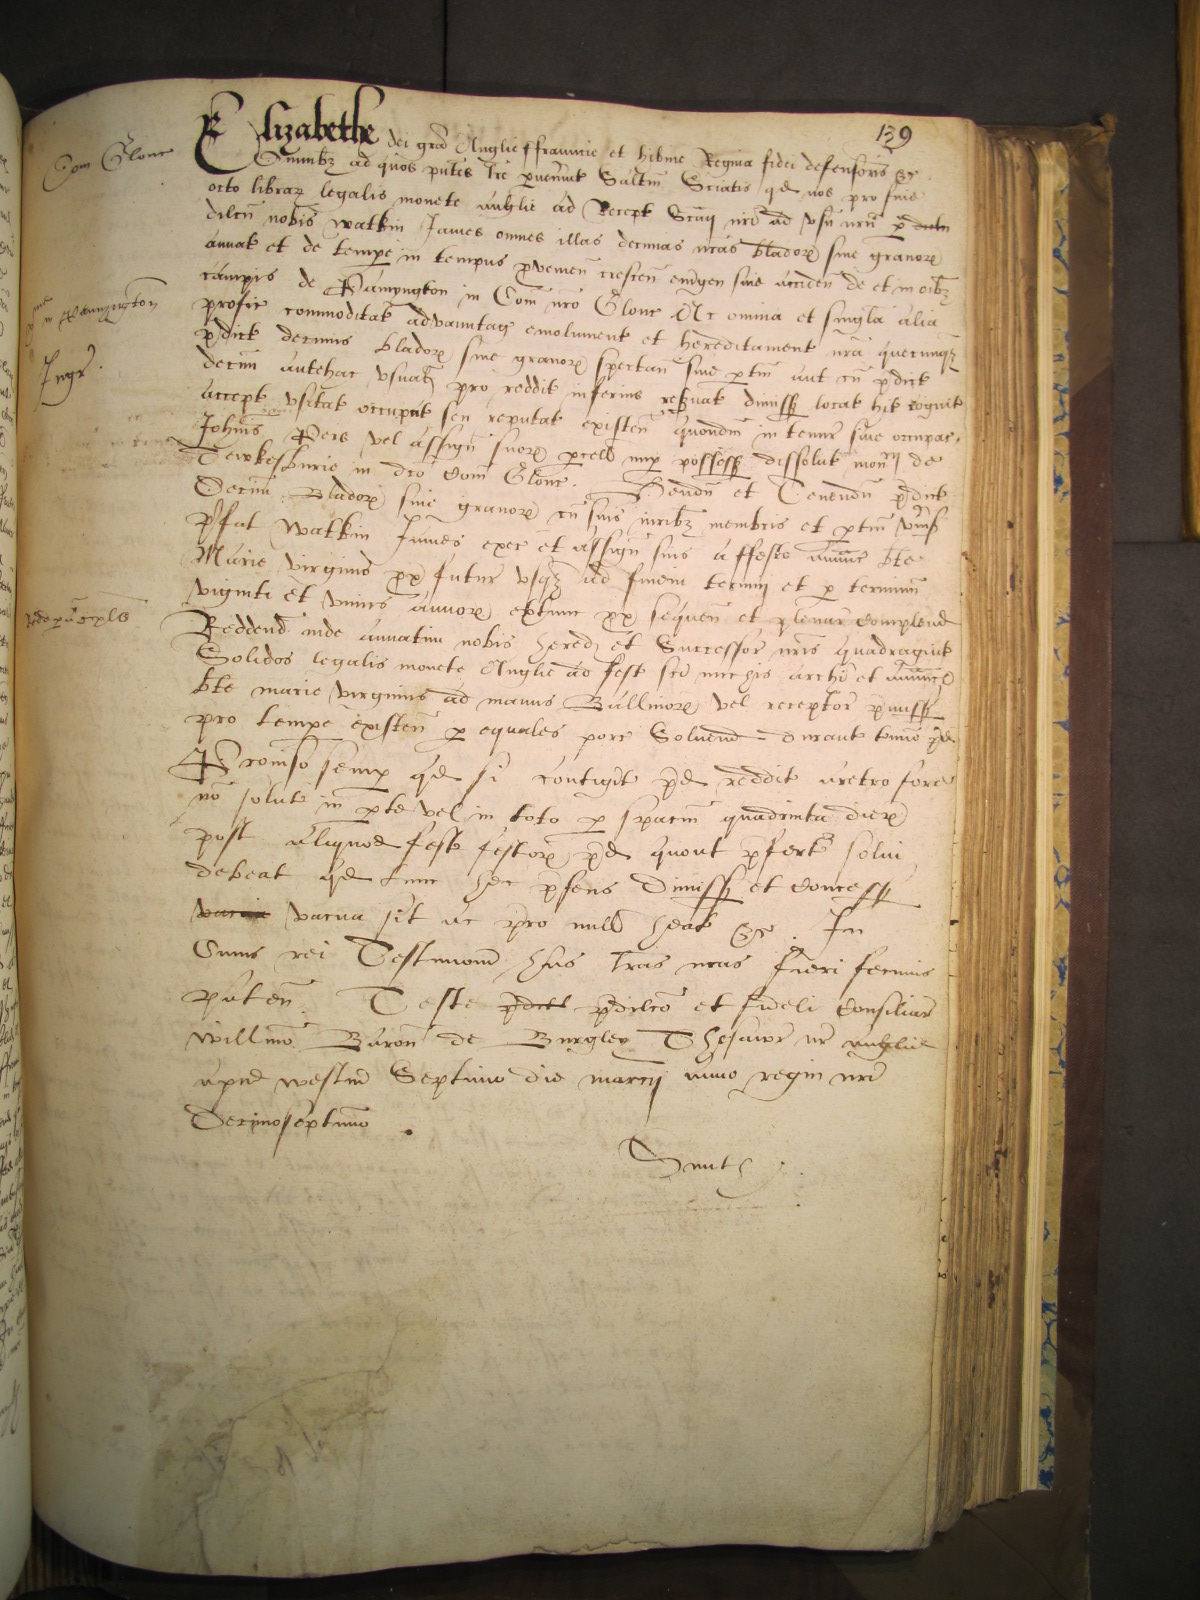 139
Com Glouc
Elizabethe dei gra Anglie ffrauncie et hibnie Regina fidei defensoris &c
Omnibz ad quos pntes lre pvenint Saltm Sciatis qd nos pro fine
octo librar legalis monete Anglie ad Recept Sccii nri ad usu nrm p
dilcm nobis Watkin James omnes illas decimas nras blador sive granor
annat et de tempe in tempus pvenien crescen emgen sive acciden de et in oibz
campis de Pamyngton in Com nro Glouc Ac omnia et singla alia
profic commoditat advauntag emolument et hereditament nra quecunqz
pdict decimis blador sive granor spectan sive ptin aut cu pdict
decim antehac usuat pro reddit inferius reservat dimiss locat hit cognit
accept usitat occupat seu reputat existen quondm in tenur sive occupac
Johnis Peis vel assign suor pcell nup possess dissolut monrij de
Tewkesburie in dco Com Glouc. Hendu et Tenendu pdict
Decim Blador sive granor cu suis iuribz membris et ptin univs
pfat Watkin James exec et assign suis a ffesto Annunc bte
Marie virginis px futur usqz ad finem termini et p terminu
viginti et unius annor extunc px sequen et plenar complend
Reddend inde annatim nobis hered et Successor nris quadragint
Solidos legalis monete Anglie ad fest sci michis archi et Annunc
bte marie virginis ad manus Ballivor vel receptor pmiss
pro tempe existen p equales porc Solvend durant termio pd
Proviso semp qd si contigit pd reddit aretro fore
no solut in pte vel in toto p spacm quadrinta dier
post aliquod fest festor pd quout pfert solui
debeat qd tunc hec psens Dimiss et Concess
vacua vacua sit ac pro null heat &c . In
Cuius rei Testimoniu has lras nras fieri fecimus
paten Teste pdict pdilco et fideli Consiliar
willmo Baron de Burgley Thesaur nr Anglie
apud westm Septimo die marcij anno regni nri
Decimoseptimo .
Smith
Pamington
Ingr.